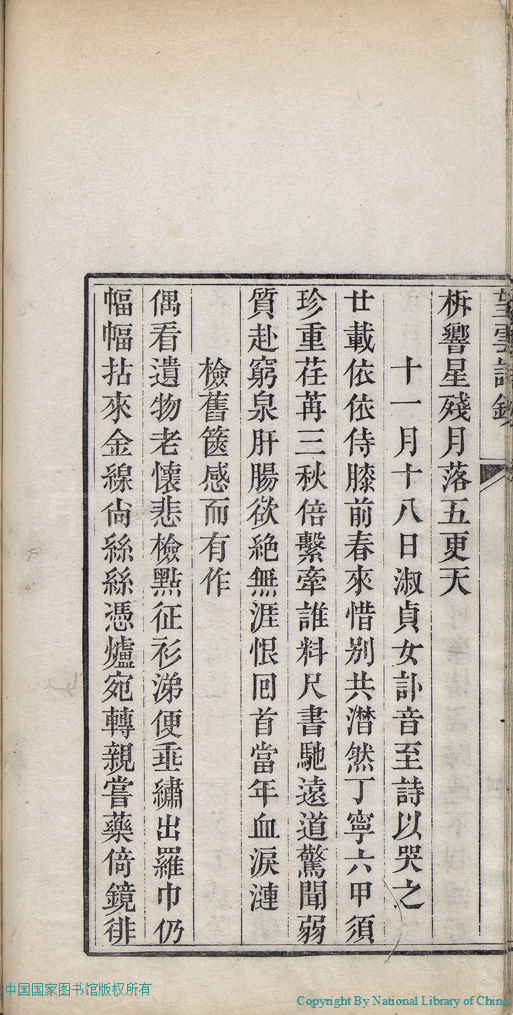 望雲詩鈔
柝響星殘月落五更天
十一月十八日淑貞女訃音至詩以哭之
廿載依依侍膝前春來惜别共潸然丁寧六甲須
珍重荏苒三秋倍繫牽誰料尺書馳遠道驚聞弱
質赴窮泉肝腸欲絶無涯恨回首當年血淚漣
檢舊篋感而有作
偶看遺物老懷悲檢點征衫涕便垂繡出羅巾仍
幅幅拈來金線尙絲絲憑爐宛轉親嘗藥倚鏡徘
中国国家图书馆版权所有
Copyright By National Library of China